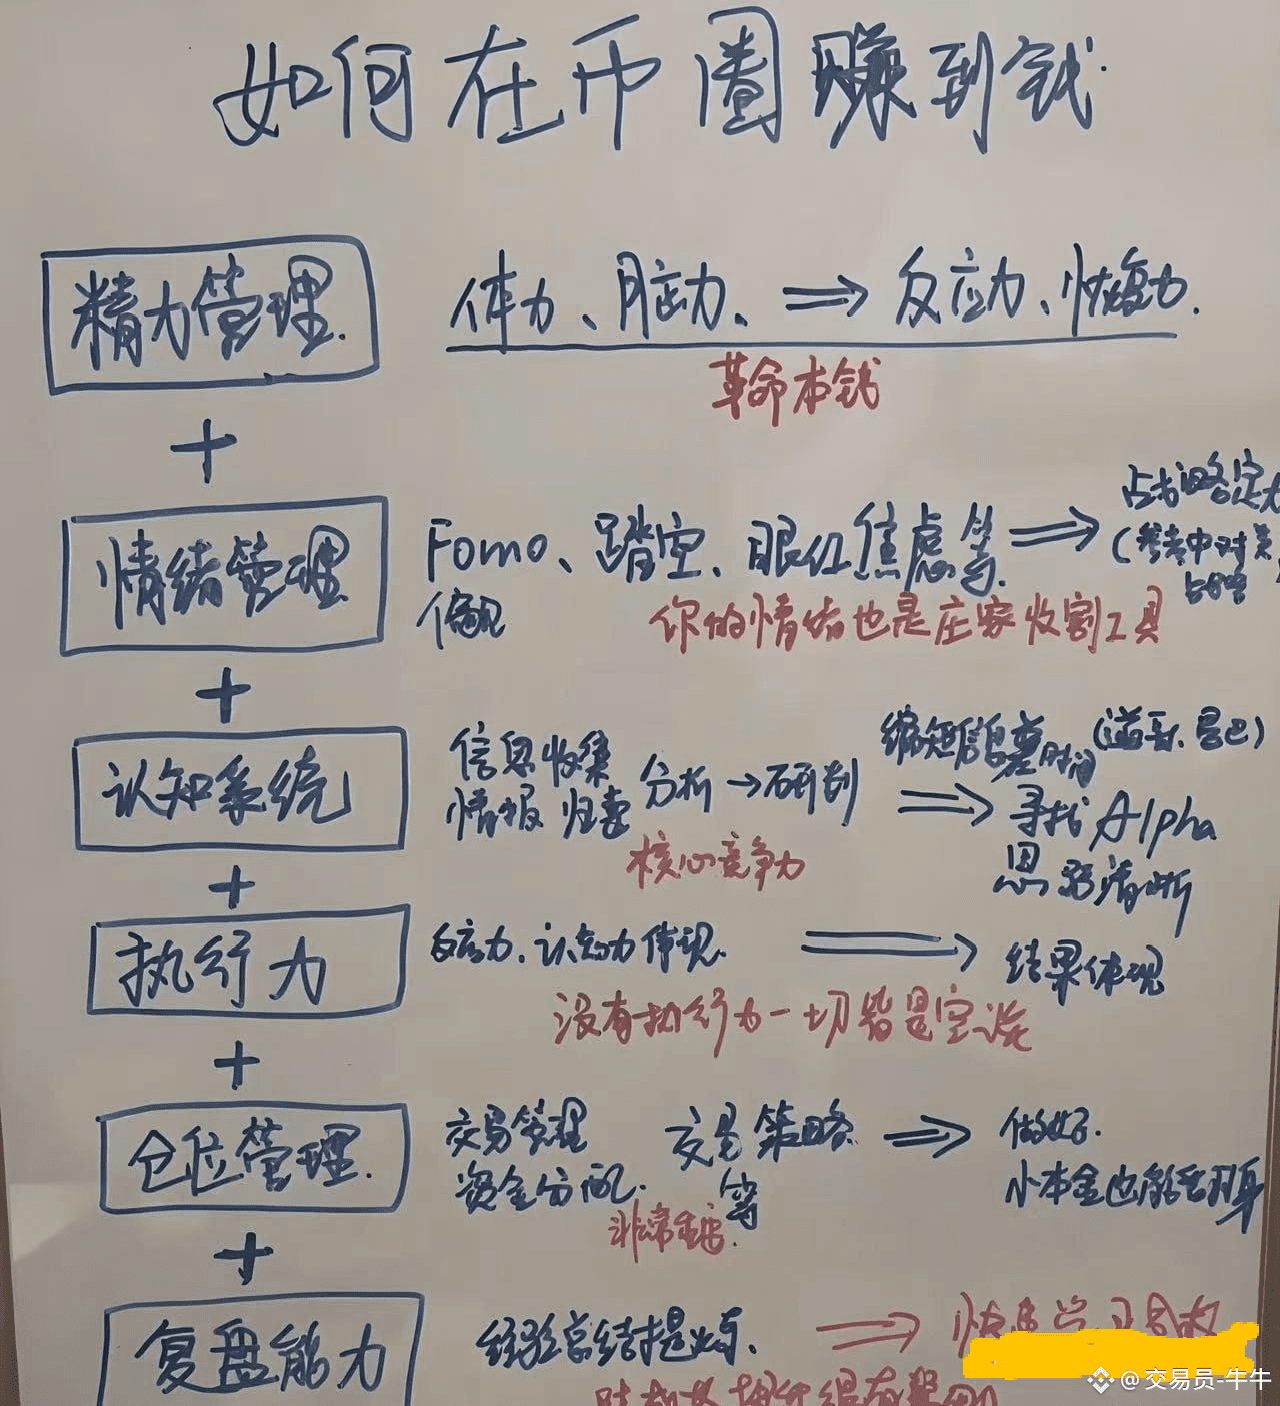 如何在币圈赚到钱
精力管理. 体力、脑力、⇒ 反应力、恢复力.
革命本钱
+
情绪管理 Fomo、踏空、眼红焦虑等. ⇒ 战略定
偏见 (参考中对美
你的情绪也是庄家收割工具
+
认知系统 信息收集 分析→研判 ⇒ 缩短信息差时间
情报归 寻找Alpha
核心竞争力 思路清晰
+
执行力 反应力、认知力体现. ⇒ 结果体现
没有执行力一切皆是空谈
+
仓位管理. 交易管理 交易策略等 ⇒ 做好.
资金分配. 小本金也能翻身
非常重要.
+
复盘能力 经验总结提炼. ⇒
@交易员-牛牛